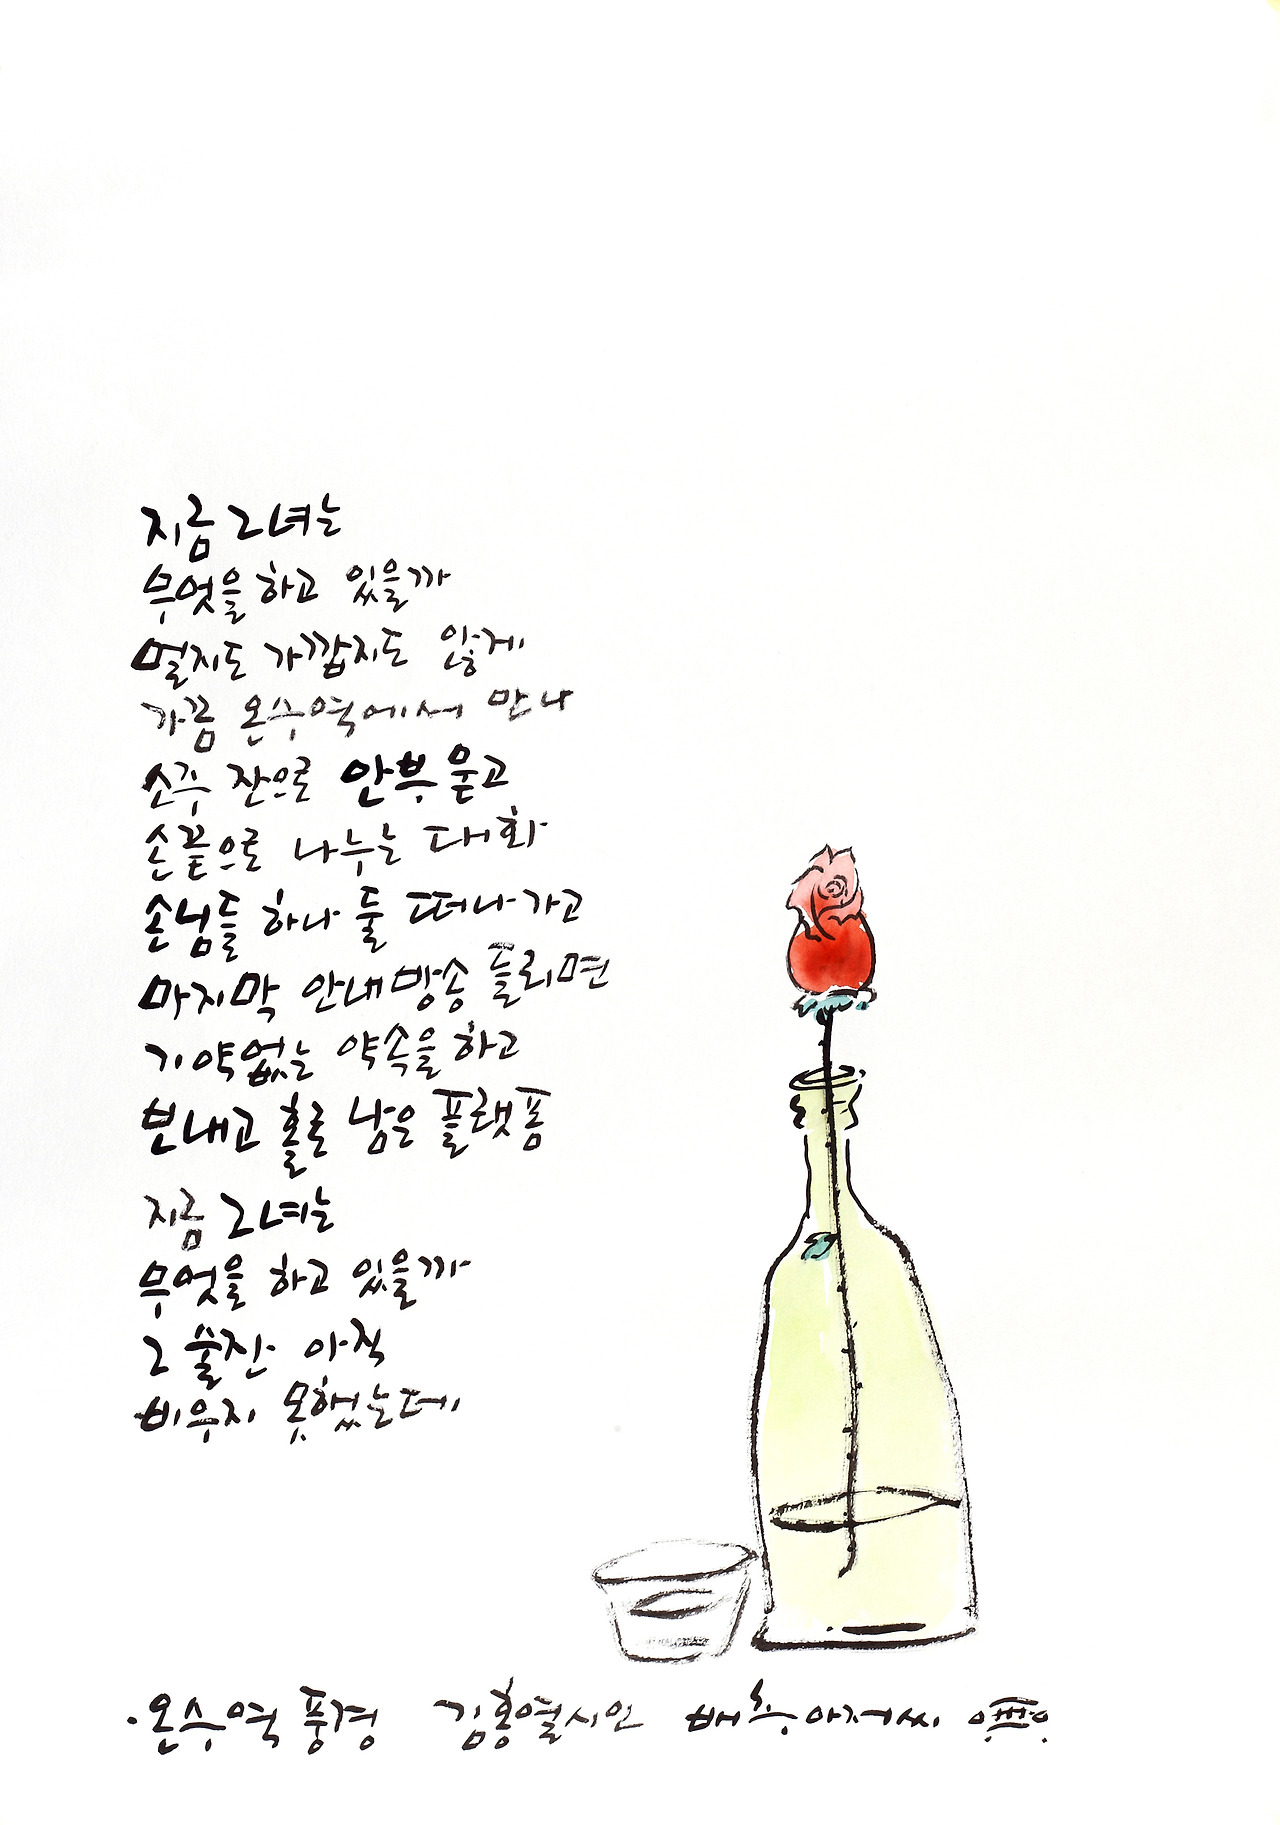 지금 그녀는
무엇을 하고 있을까
멀지도 가깝지도 않게
가끔 온수역에서 만나
소주 잔으로 안부 묻고
손끝으로 나누는 대화
손님들 하나 둘 떠나가고
마지막 안내방송 들리면
기약없는 약속을 하고
보내고 홀로 남은 플랫폼
지금 그녀는
무엇을 하고 있을까
그 술잔 아직
비우지 못했는데
·온수역 풍경 김홍열시인 배추아저씨